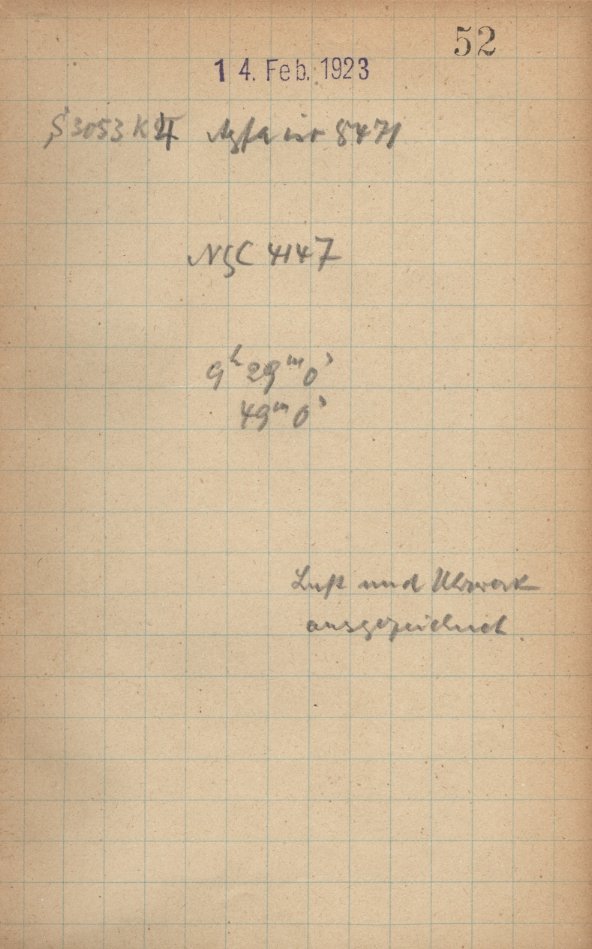 52
14. Feb. 1923
S 3053 Agfa 8471
NGC 4147
9h 29m 0s
49m 0s
Luft und Uhrwerk
ausgezeichnet